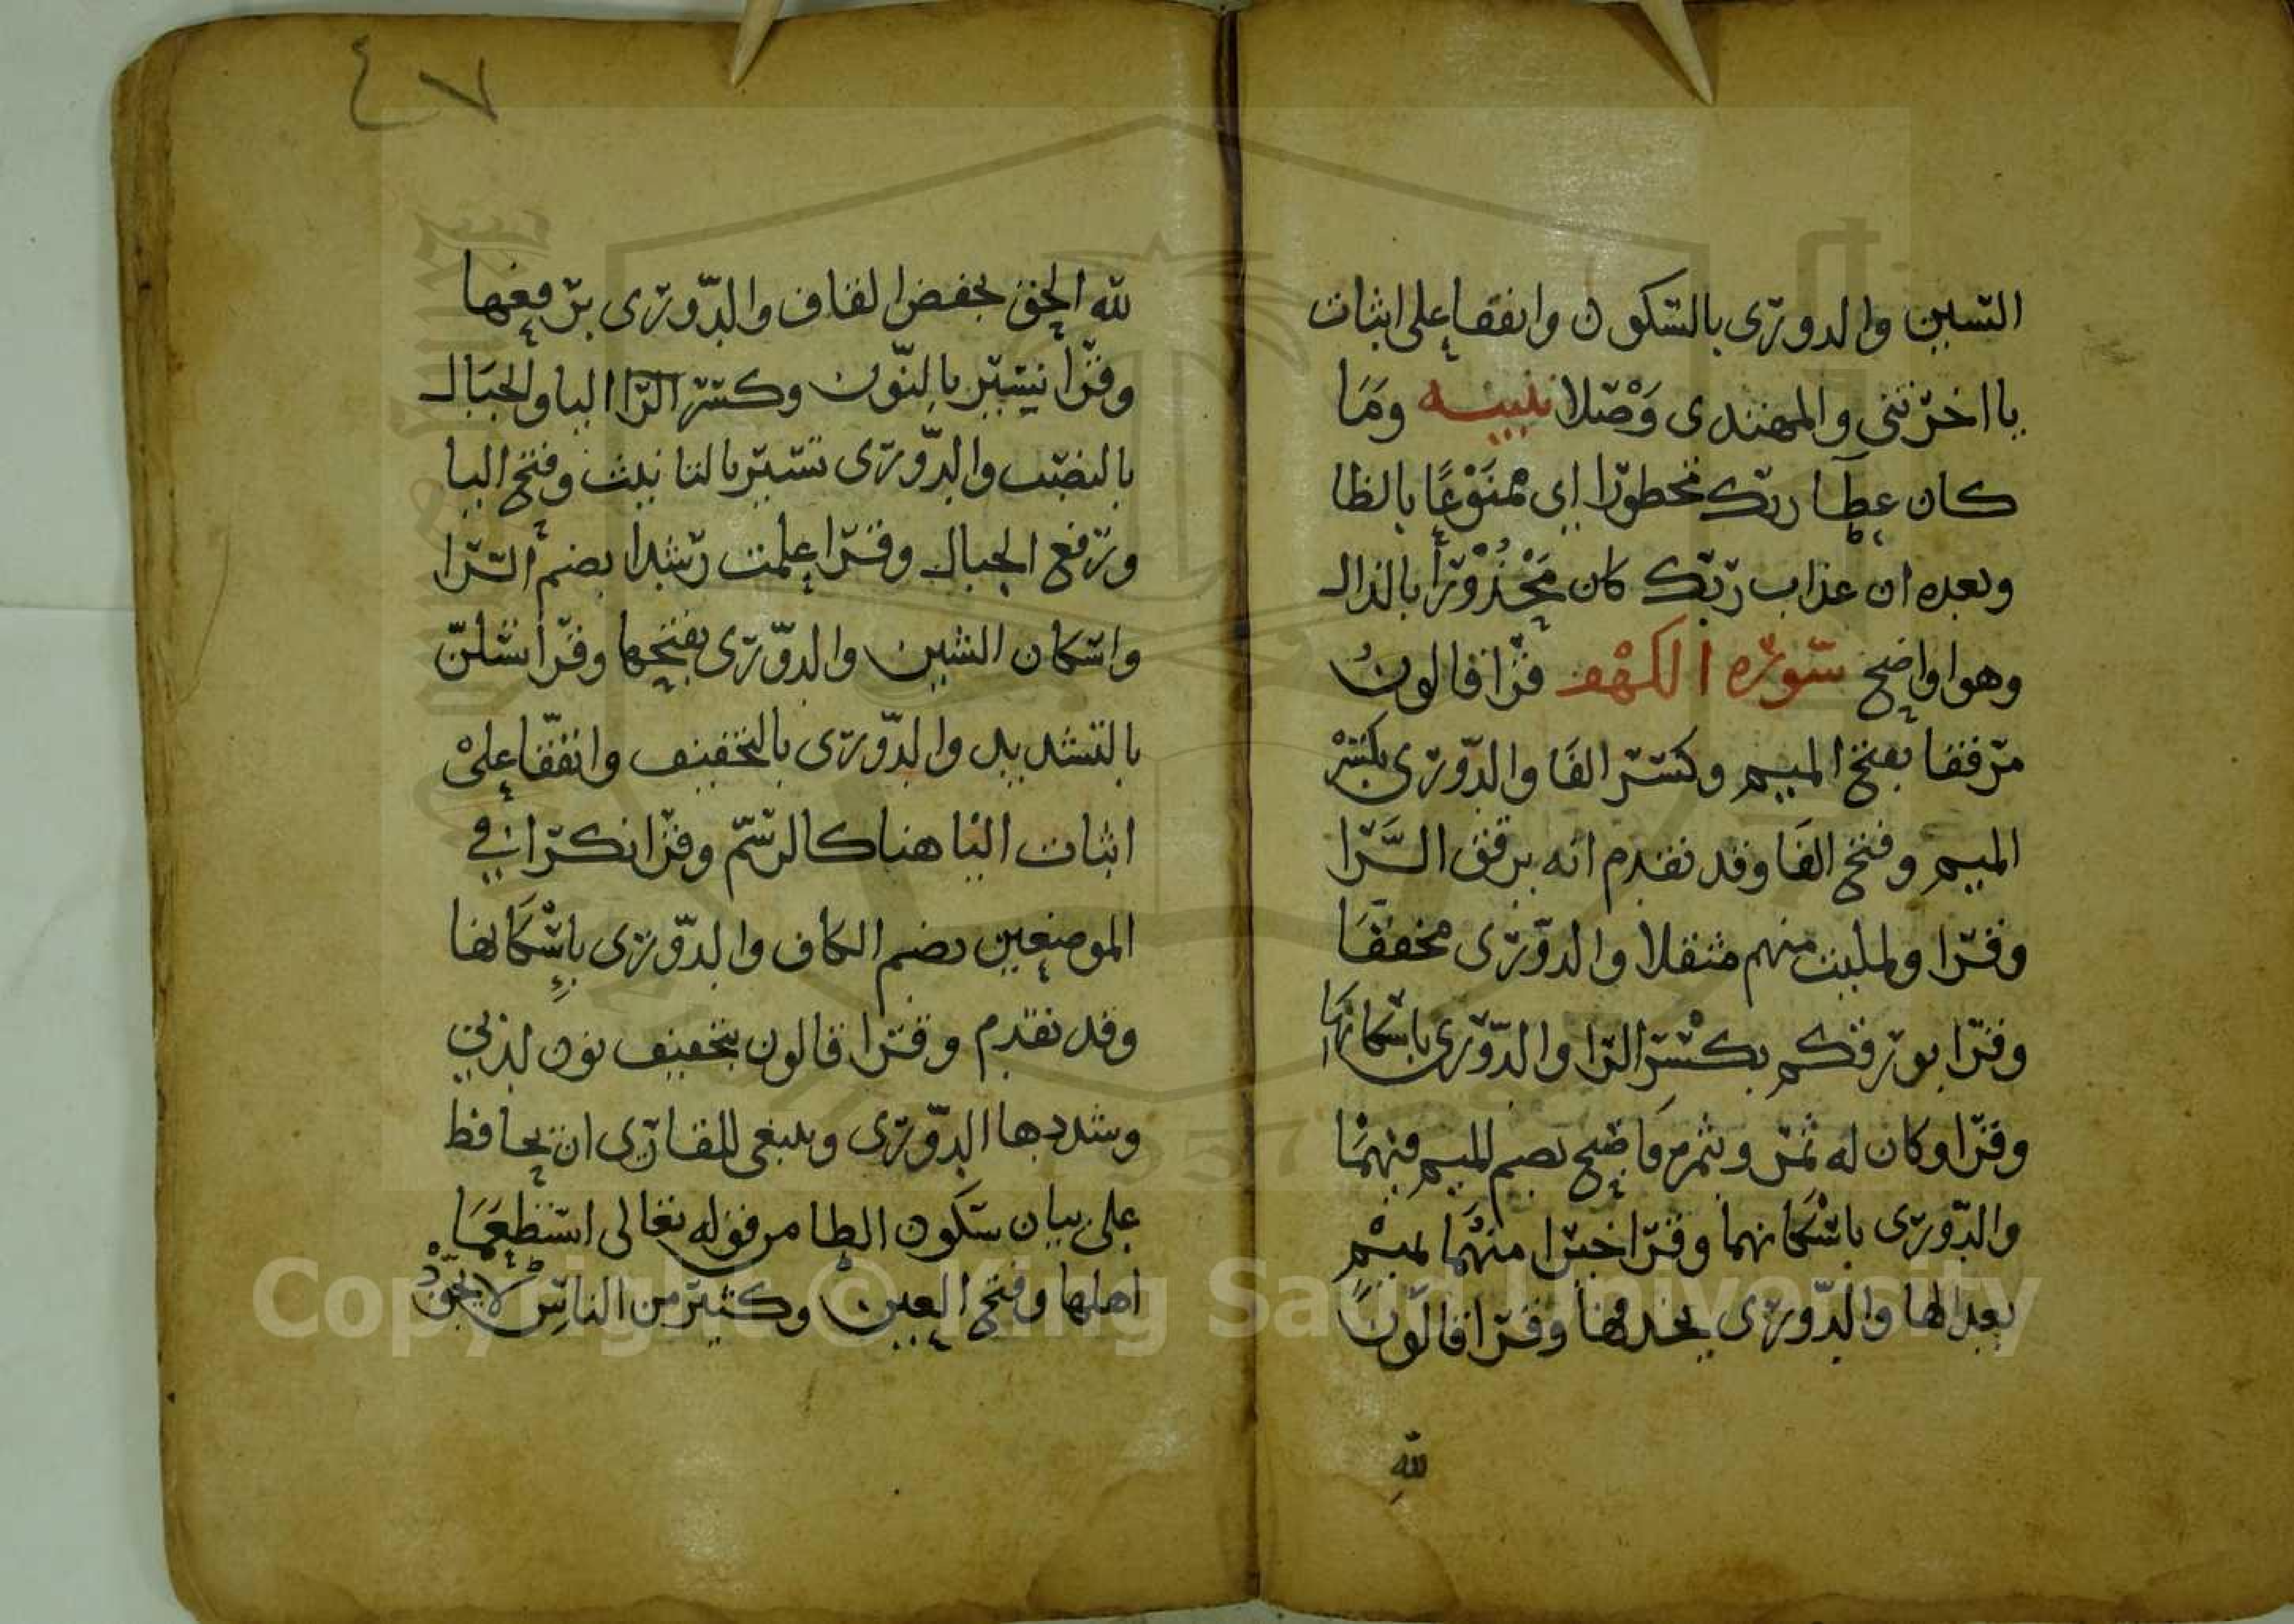 السين والدوري بالسكون واتفقا على اثبات
يا اخرتني والمهتدي وَصْلا تنبيه ومَا
كان عطآ ربك محظورا اي مْمنَوْعًا بالظا
وبعده ان عذاب ربّك كان مَحْذُوْرَاً بالذال
وهوا واضح سوره الكهْف قرا قالون
مرفقا بفتح الميم وكسر الفَا والدّوري بكسْر
الميم وفتح الفَا وقد تقدم انه يرقق الرَّا
وقرا ولمليت منهم مثقلا والدوري مخففَا
وقرا بورقكم بكسْر الرا والدّوري باسكانهَا
وقرا وكان له ثمر وبثمره فاصبح بضم الميم فيهمَا
والدّوري باسْكانهما وقرا خيرا منهْمَا لميْم
بعد الها والدّوري بحذفها وقرا قالون
للهِ
٤٧
لله الحق بخفض القاف والدّوري برفعها
وقرا نسير بالنّون وكسر الرا اليا والجبَال
بالنصب والدّوري تسير بالتا نيث وفتح اليا
ورفع الجبال وقرا علمت رشدا بضم الرا
واسكان الشين والدّوري بفتحها وقرا تسْلنّ
بالتشديد والدّوري بالتخفيف واتفقا علىْ
اثبات اليَا هنا كالرسْم وقرا نكرا في
الموضعين بضم الكاف والدّوري باِسْكَانها
وقد تقدم وقرا قالون بتخفيف نون لدني
وشددها الدّوري وينبغي للقاري ان يحافظ
على بيان سكون الطا من قوله تعالى استطعَمَا
اهلها وفتح العين وكثير من الناسِ لا يجوّدْ
Copyright © King Saud University
1957